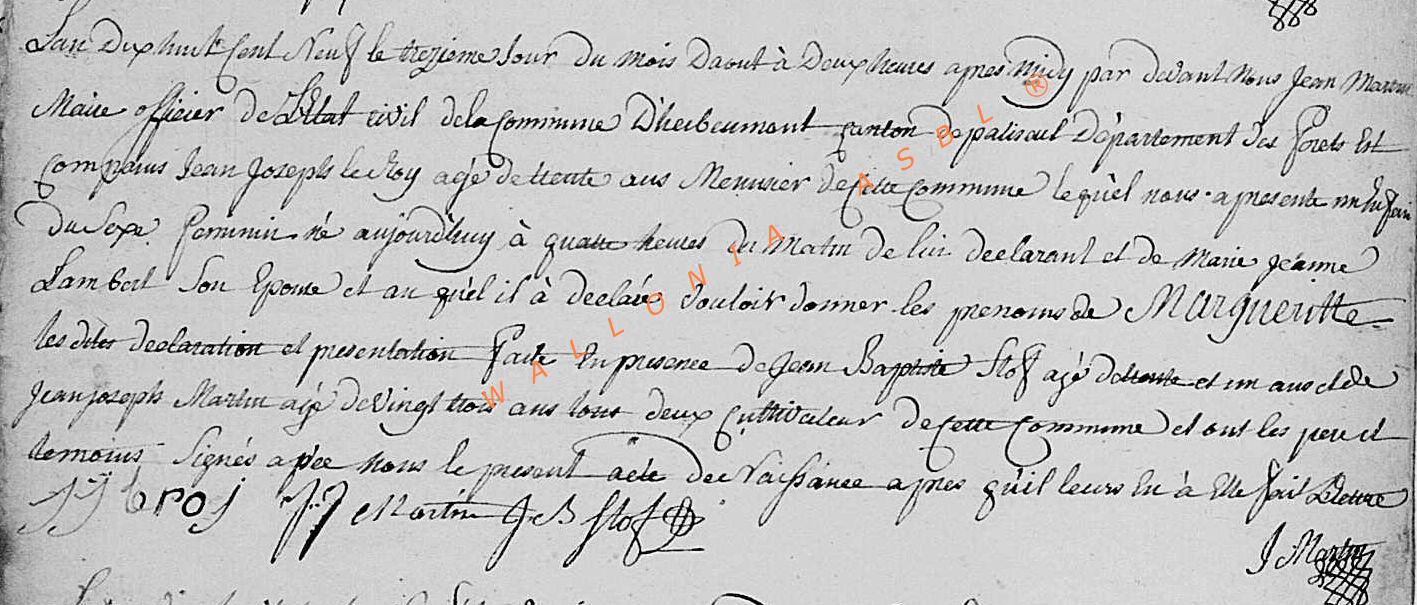 L'an Dix huit Cent Neuf le treizieme Jour du mois Daout à Deux heures apres midy par devant Nous Jean Martin
Maire officier de L'Etat civil dela Commune D'herbeumont canton de paliseul Département des forets Est
comparus Jean Joseph le Roy agé de trente ans Menusier de Cette Commune lequel nous a presente un Enfan
du Sexe feminin né aujourd'huy à quatre heures du Matin de lui declarant et de Marie Jeanne
Lambert Son Epouse et au quel il à declaré Vouloir donner les prenoms de Margueritte
les dites declaration et presentation faite En presence de Jean Baptiste Stof agé de trente et un ans et de
Jean joseph Martin agé de vingt trois ans tous deux Cultivateur de Cette Commune et ont les pere et
temoins Signés apée Nous le present acte de Naissance apres qu'il leurs En à Ette fait Lecture
JJ le roj J:J Martin J B Stof
J Martin
WALLONIA ASBL ®